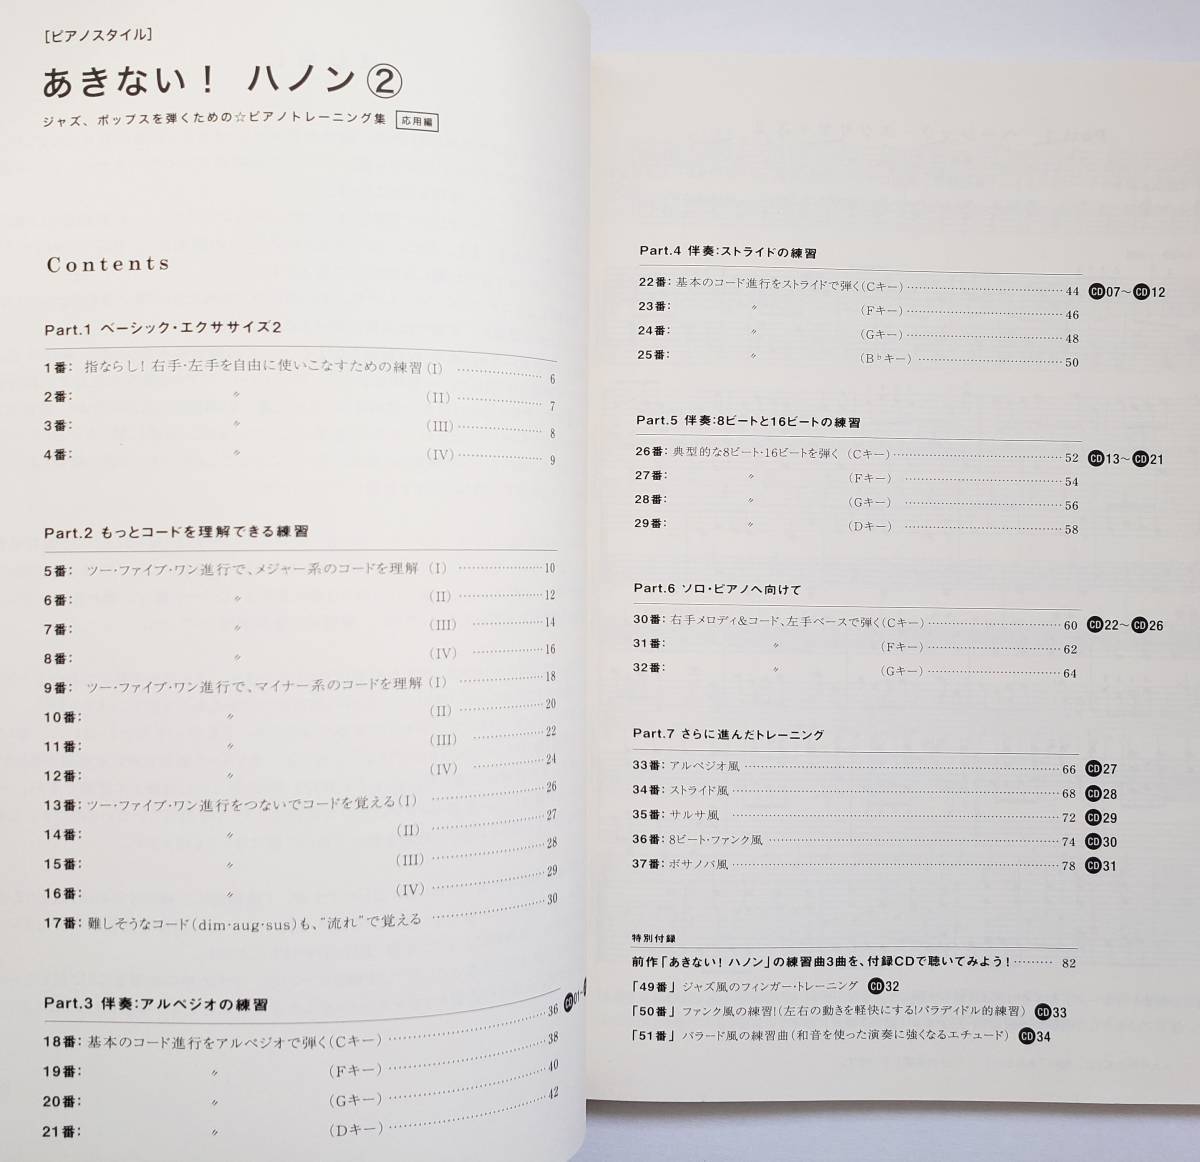 [ピアノスタイル]
あきない! ハノン②
ジャズ、ポップスを弾くための☆ピアノトレーニング集 応用編
Contents
Part.1 ベーシック・エクササイズ2
1番: 指ならし! 右手・左手を自由に使いこなすための練習(I) 6
2番: 〃 (II) 7
3番: 〃 (III) 8
4番: 〃 (IV) 9
Part.2 もっとコードを理解できる練習
5番: ツー・ファイブ・ワン進行で、メジャー系のコードを理解 (I) 10
6番: 〃 (II) 12
7番: 〃 (III) 14
8番: 〃 (IV) 16
9番: ツー・ファイブ・ワン進行で、マイナー系のコードを理解(I) 18
10番: 〃 (II) 20
11番: 〃 (III) 22
12番: 〃 (IV) 24
13番: ツー・ファイブ・ワン進行をつないでコードを覚える(I) 26
14番: 〃 (II) 27
15番: 〃 (III) 28
16番: 〃 (IV) 29
17番: 難しそうなコード(dim・aug・sus)も、"流れ"で覚える 30
Part.3 伴奏:アルペジオの練習
18番: 基本のコード進行をアルペジオで弾く(Cキー) 36 CD01~
19番: 〃 (Fキー) 38
20番: 〃 (Gキー) 40
21番: 〃 (Dキー) 42
Part.4 伴奏:ストライドの練習
22番: 基本のコード進行をストライドで弾く(Cキー) 44 CD07~CD12
23番: 〃 (Fキー) 46
24番: 〃 (Gキー) 48
25番: 〃 (B♭キー) 50
Part.5 伴奏:8ビートと16ビートの練習
26番: 典型的な8ビート・16ビートを弾く (Cキー) 52 CD13~CD21
27番: 〃 (Fキー) 54
28番: 〃 (Gキー) 56
29番: 〃 (Dキー) 58
Part.6 ソロ・ピアノへ向けて
30番: 右手メロディ&コード、左手ベースで弾く(Cキー) 60 CD22~CD26
31番: 〃 (Fキー) 62
32番: 〃 (Gキー) 64
Part.7 さらに進んだトレーニング
33番: アルペジオ風 66 CD27
34番: ストライド風 68 CD28
35番: サルサ風 72 CD29
36番: 8ビート・ファンク風 74 CD30
37番: ボサノバ風 78 CD31
特別付録
前作「あきない! ハノン」の練習曲3曲を、付録CDで聴いてみよう! 82
「49番」 ジャズ風のフィンガー・トレーニング CD32
「50番」 ファンク風の練習!(左右の動きを軽快にする!パラディドル的練習) CD33
「51番」 バラード風の練習曲(和音を使った演奏に強くなるエチュード) CD34